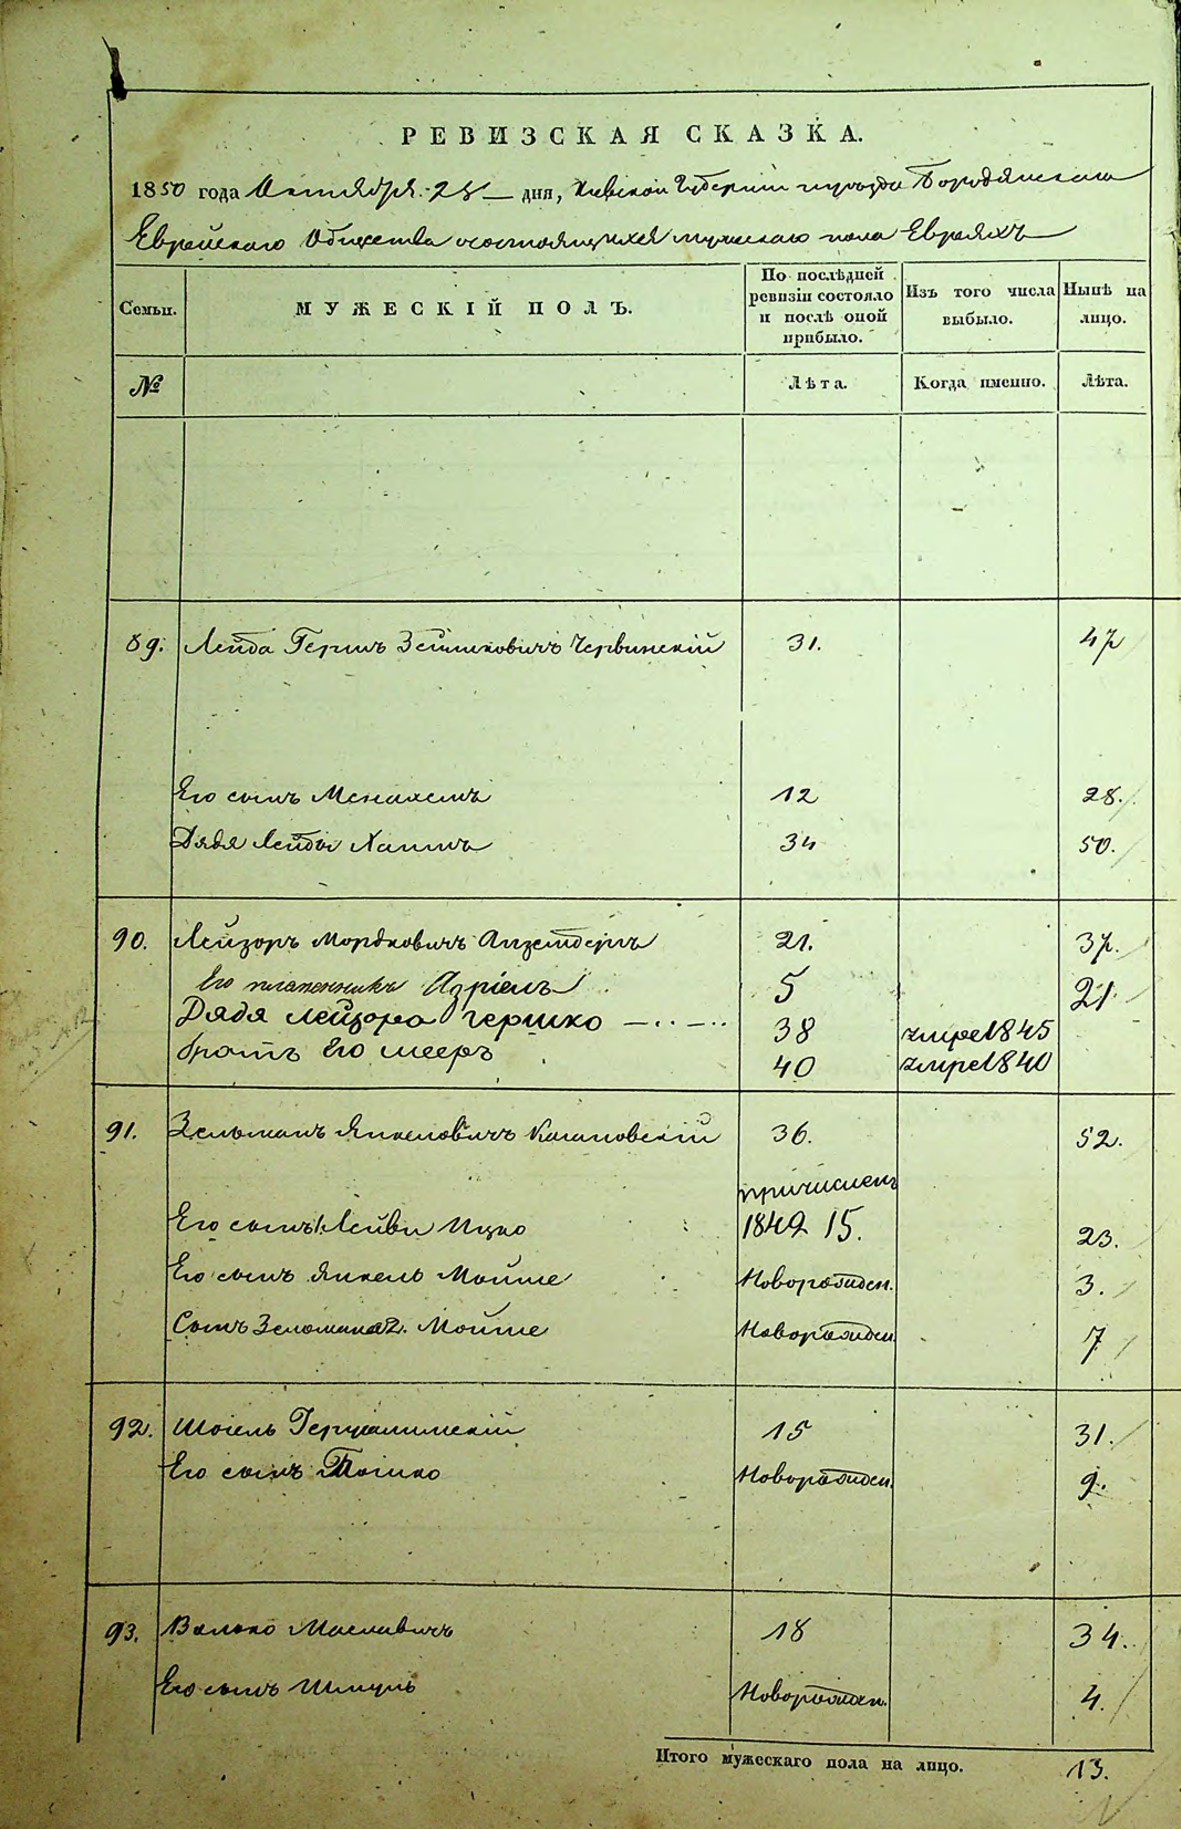 РЕВИЗСКАЯ СКАЗКА.
1850 года Октября 25 дня, Киевской Губернии Бородянскаго
Еврейскаго Общества состоящихся мужескаго пола Евреяхъ
Семьи.
МУЖЕСКІЙ ПОЛЪ.
По послѣдней ревизіи состояло и послѣ оной прибыло.
Изъ того числа выбыло.
Нынѣ на лицо.
№
Лѣта.
Когда именно.
Лѣта.
89. Лейба Гершъ Зейликовичъ Червинскій 31. 47
Его сынъ Менахемъ 12 28.
Дядя Лейбы Хаимъ 34 50.
90. Лейзоръ Мордковичъ 21. 37.
Его племенникъ Адріель 5 21.
Дядя Лейзора Гершко 38 умре 1845
братъ Его Мееръ 40 умре 1840
91. Зельманъ Янкелевичъ Кагановскій 36. 52.
причислен
Его сынъ 1. Лейви Ицко 1849 15. 23.
Его сынъ Янкель Мойше Новорожден. 3.
Сынъ Зельмана 2. Мойше Новорожден 7
92. Шоіель Герусалимскій 15 31.
Его сынъ Іошко Новорожден. 9.
93. Волько Маславичъ 18 34.
Его сынъ Шмуль Новорожден. 4.
Итого мужескаго пола на лицо. 13.